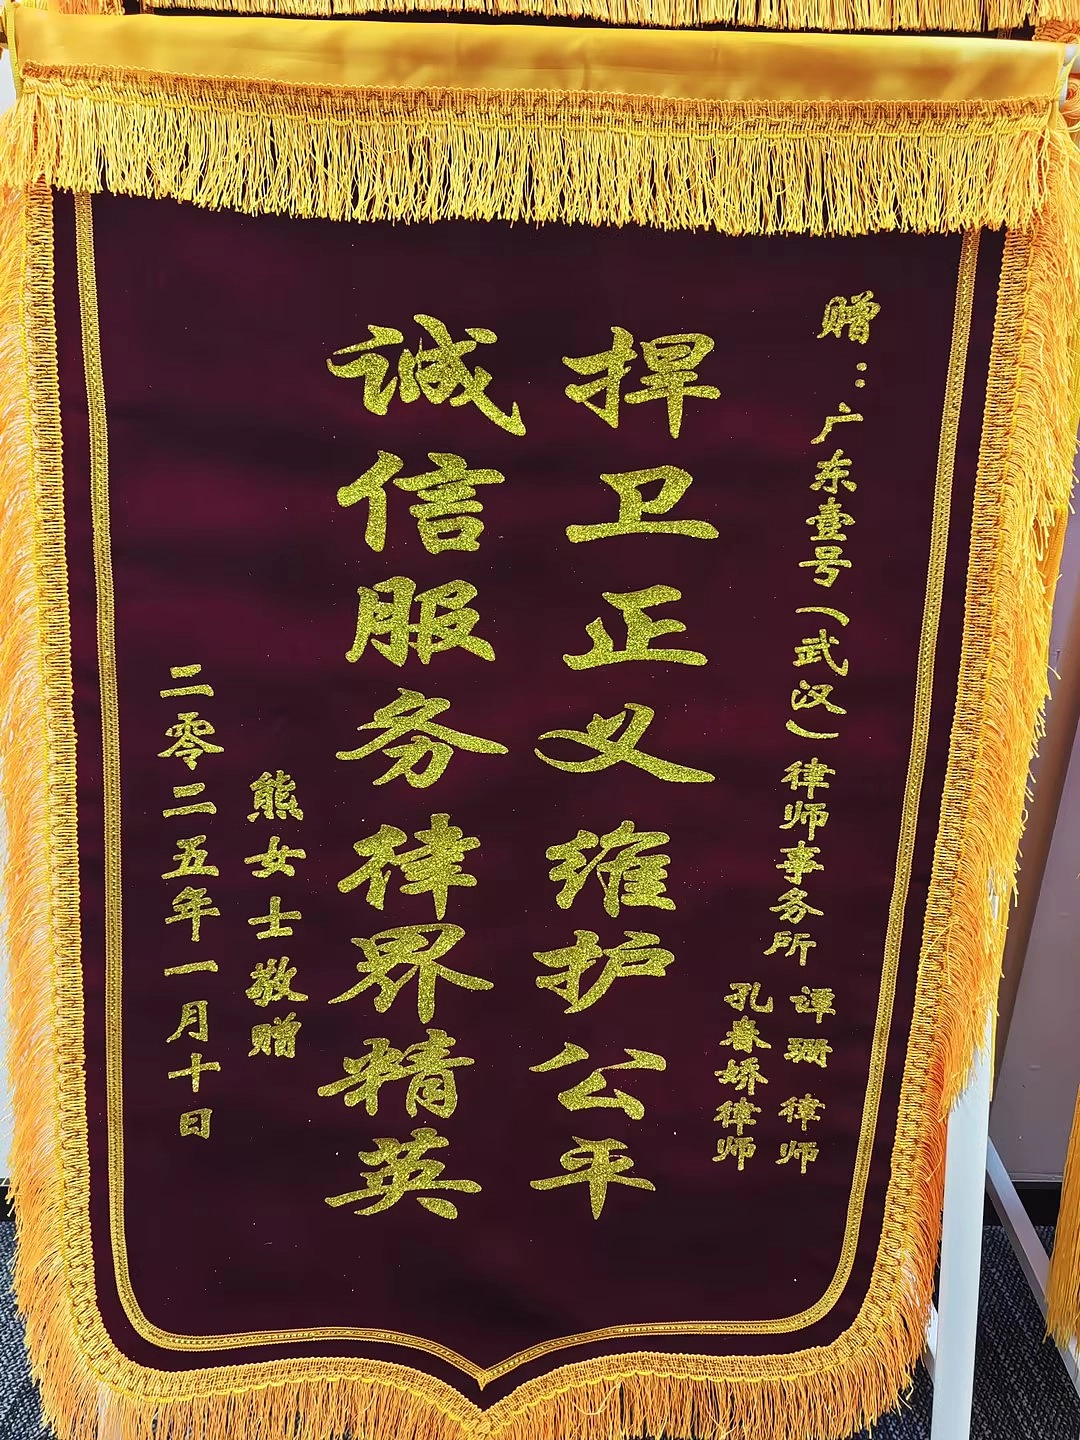 赠：广东壹号（武汉）律师事务所
谭珊 律师
孔春娇律师
捍卫正义维护公平
诚信服务律界精英
熊女士敬赠
二零二五年一月十日